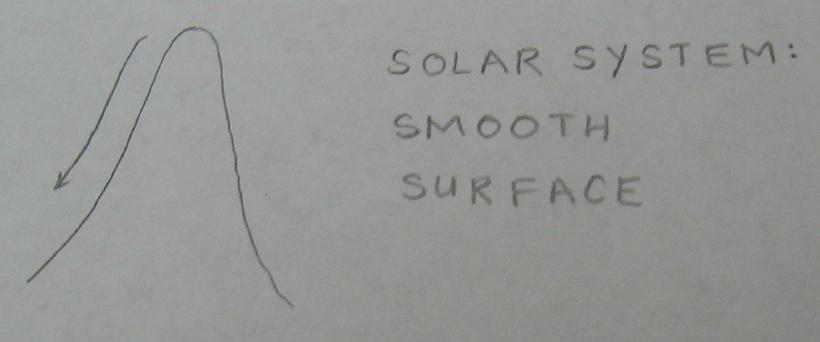 SOLAR SYSTEM:
SMOOTH
SURFACE